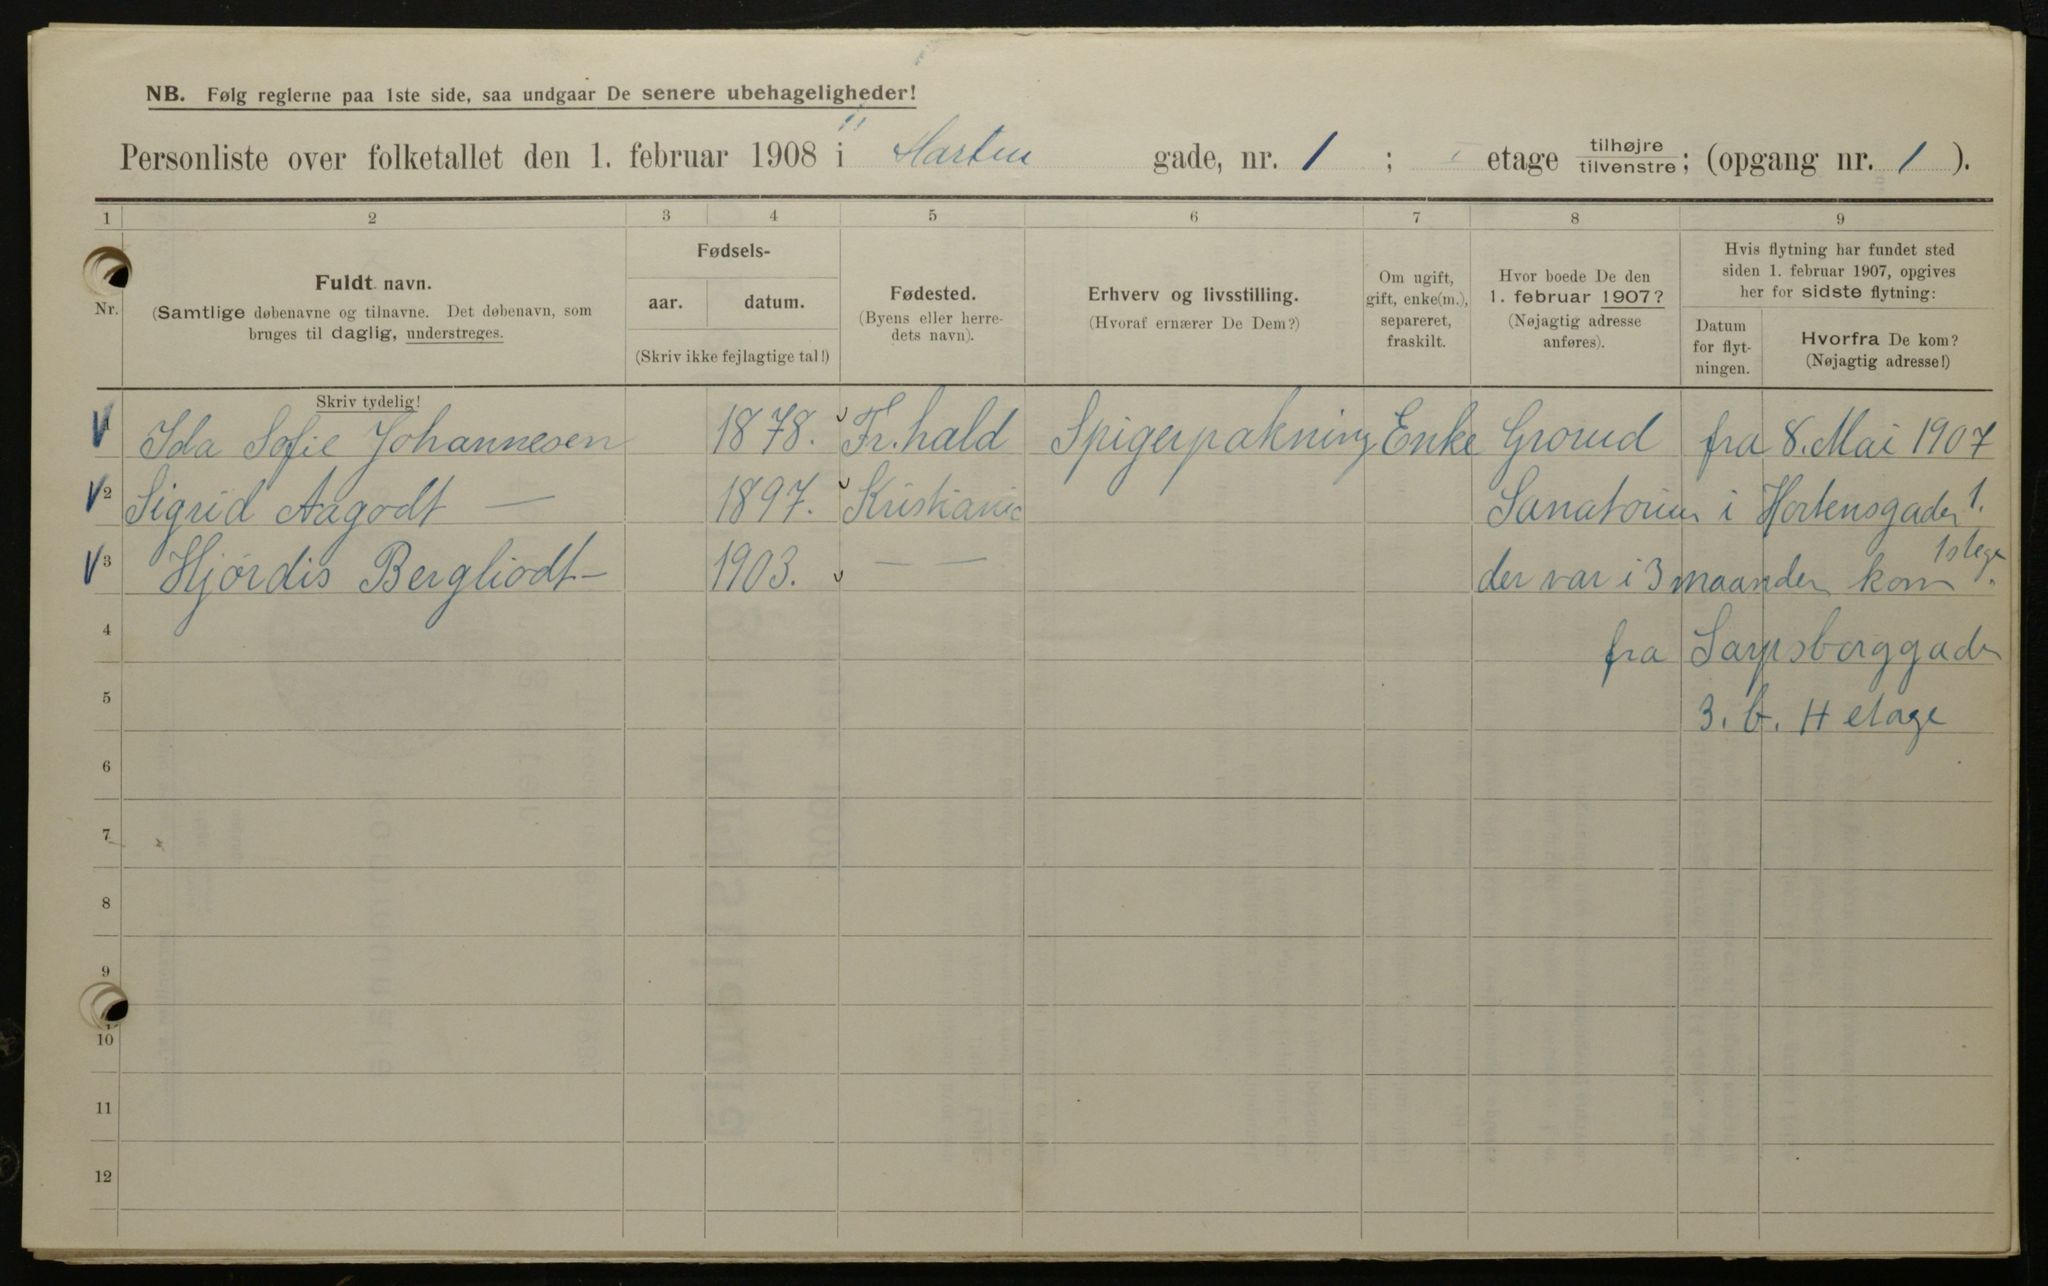 NB. Følg reglerne paa 1ste side, saa undgaar De senere ubehageligheder!
Personliste over folketallet den 1. februar 1908 i Horten gade, nr. 1 ; etage tilhøjre tilvenstre; (opgang nr. 1 ).
1 2 3 4 5 6 7 8 9
Nr.
Fuldt navn.
(Samtlige døbenavne og tilnavne. Det døbenavn, som
bruges til daglig, understreges.
Skriv tydelig!
Fødsels-
aar. datum.
(Skriv ikke fejlagtige tal!)
Fødested.
(Byens eller herre-
dets navn).
Erhverv og livsstilling.
(Hvoraf ernærer De Dem?)
Om ugift,
gift, enke(m.),
separeret,
fraskilt.
Hvor boede De den
1. februar 1907?
(Nøjagtig adresse
anføres).
Hvis flytning har fundet sted
siden 1. februar 1907, opgives
her for sidste flytning:
Datum
for flyt-
ningen.
Hvorfra De kom?
(Nøjagtig adresse!)
1 Ida Sofie Johannesen 1878. Fr.hald Spigerpakning Enke Grorud fra 8. Mai 1907
2 Sigrid Aagodt — 1897. Kristiania Sanatorium i Hortensgaden 1.
1st ege
3 Hjørdis Bergliodt — 1903. — — der var i 3 maander kom
4 fra Sarpsborggaden
5 3. b. H etage
6
7
8
9
10
11
12